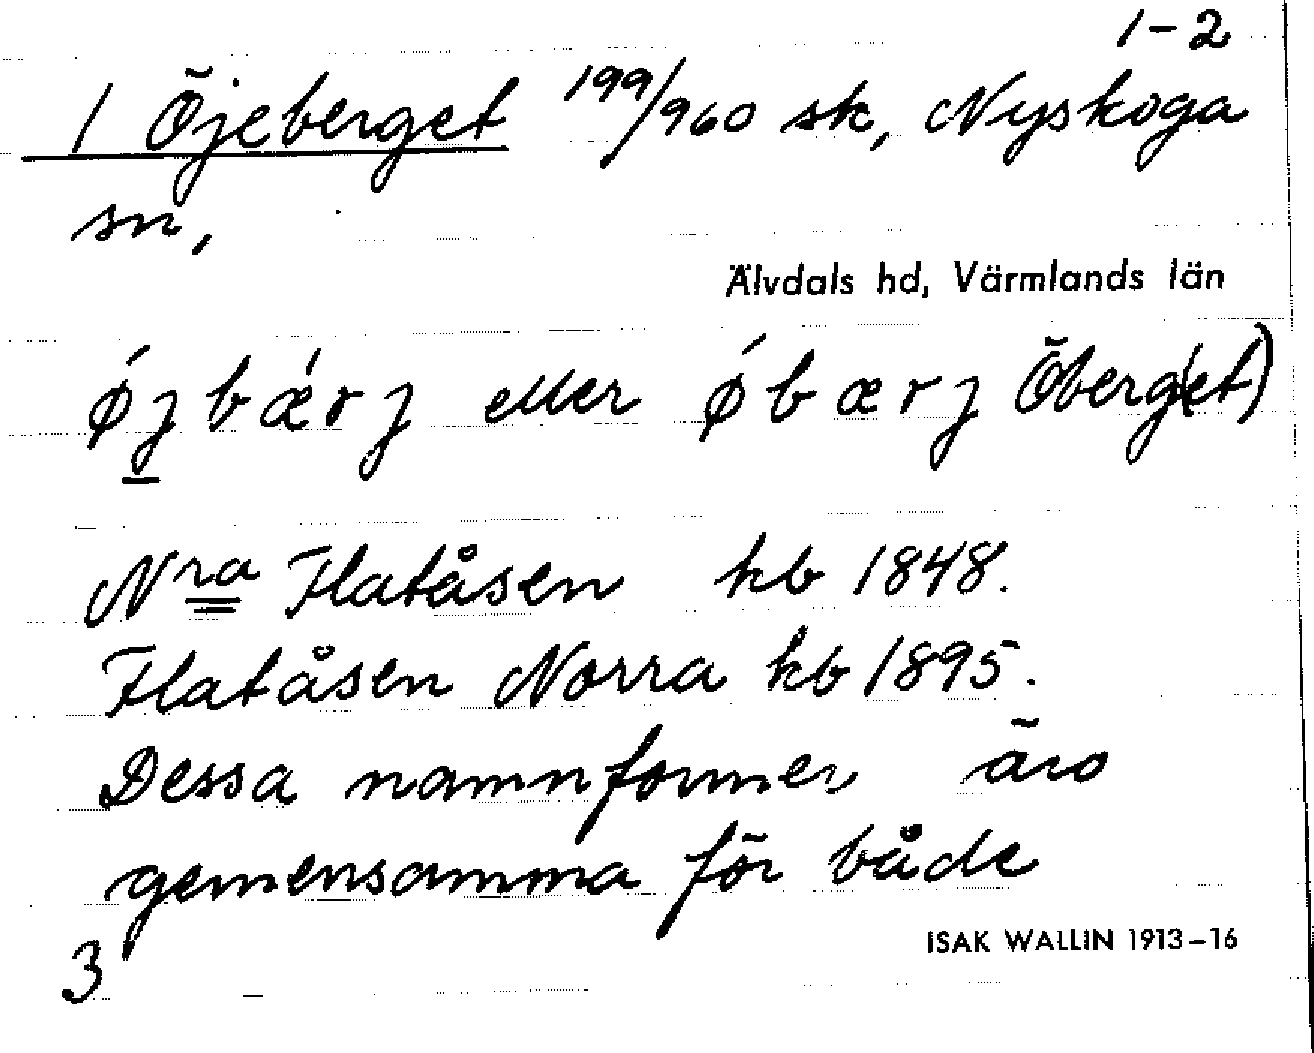 1-2
1 Öjeberget 199/960 sk, Nyskoga
sn,
Älvdals hd, Värmlands län
ǿjbǽrj eller ǿbærj Öberget)
Nra Flatåsen kb 1848.
Flatåsen Norra kb 1895.
Dessa namnformer äro
gemensamma för både
ISAK WALLIN 1913-16
3